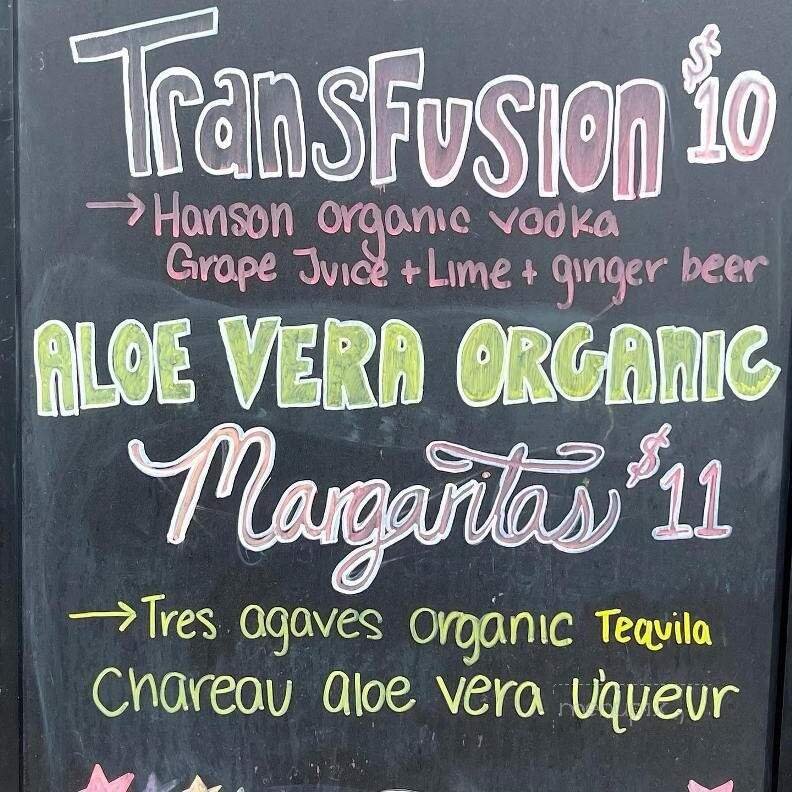 TransFusion $10
→ Hanson organic vodka
Grape Juice + Lime + ginger beer
ALOE VERA ORGANIC
Margaritas $11
→ Tres agaves organic Tequila
Chareau aloe vera liqueur